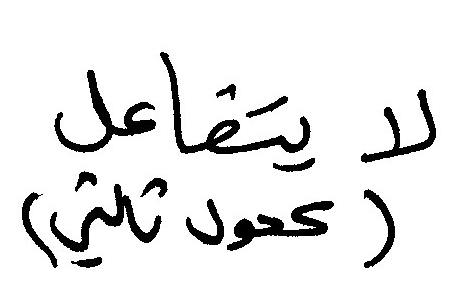 لا يتفاعل
(كحول ثالثي)